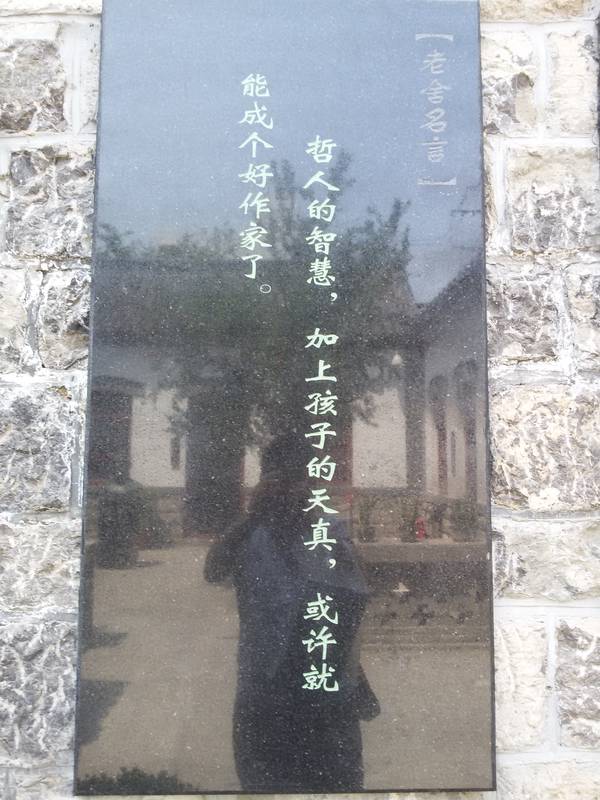 【老舍名言】
哲人的智慧，加上孩子的天真，或许就
能成个好作家了。